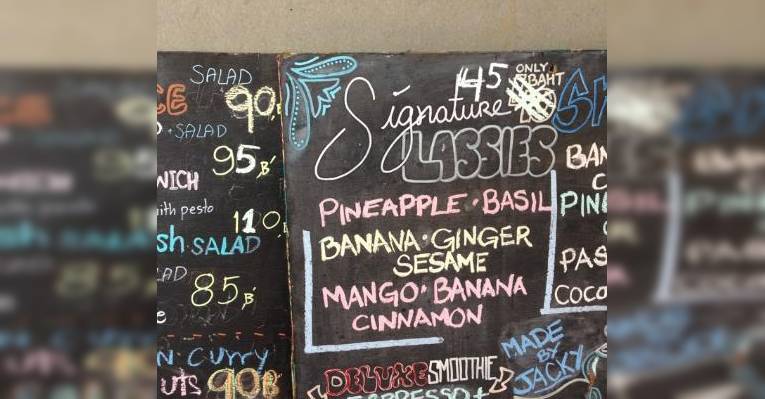 SALAD
90
SALAD
95 B
NICH
ith pesto
110
sh SALAD
85 B
CURRY
UTS 90B
45 ONLY BAHT
Signature
LASSIES
PINEAPPLE · BASIL
BANANA · GINGER
SESAME
MANGO · BANANA
CINNAMON
DELUXE SMOOTHIE
ESPRESSO +
MADE
BY
JACKY
BAN
C
PIN
PAS
COCO